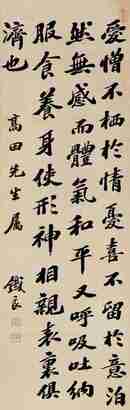 愛憎不棲於情憂喜不留於意泊
然無感而體氣和平又呼吸吐納
服食養身使形神相親表裏俱
濟也
高田先生属
鐵良